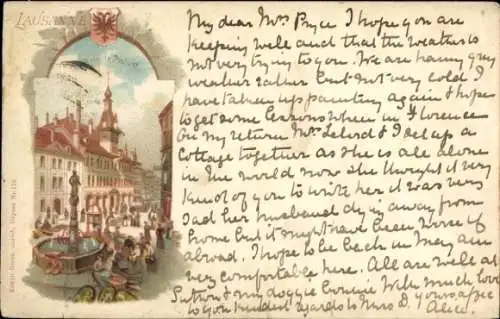 LAUSANNE
My dear Mrs Pryce I hope you are
keeping well and that the weather is
not very trying to you. We are having grey
weather rather but not very cold I
have taken up painting again & hope
to get some lessons when in Florence
On my return Mrs & I set up a
cottage together as she is all alone
in the world now she thought it very
kind of you to write her it was very
sad her husband dying away from
home but it might have been worse if
abroad. I hope to be back in May am
very comfortable here. All are well at
Sutton & my doggie Connie With much love
to you kindest regards to Miss D. yours aff
Alice.